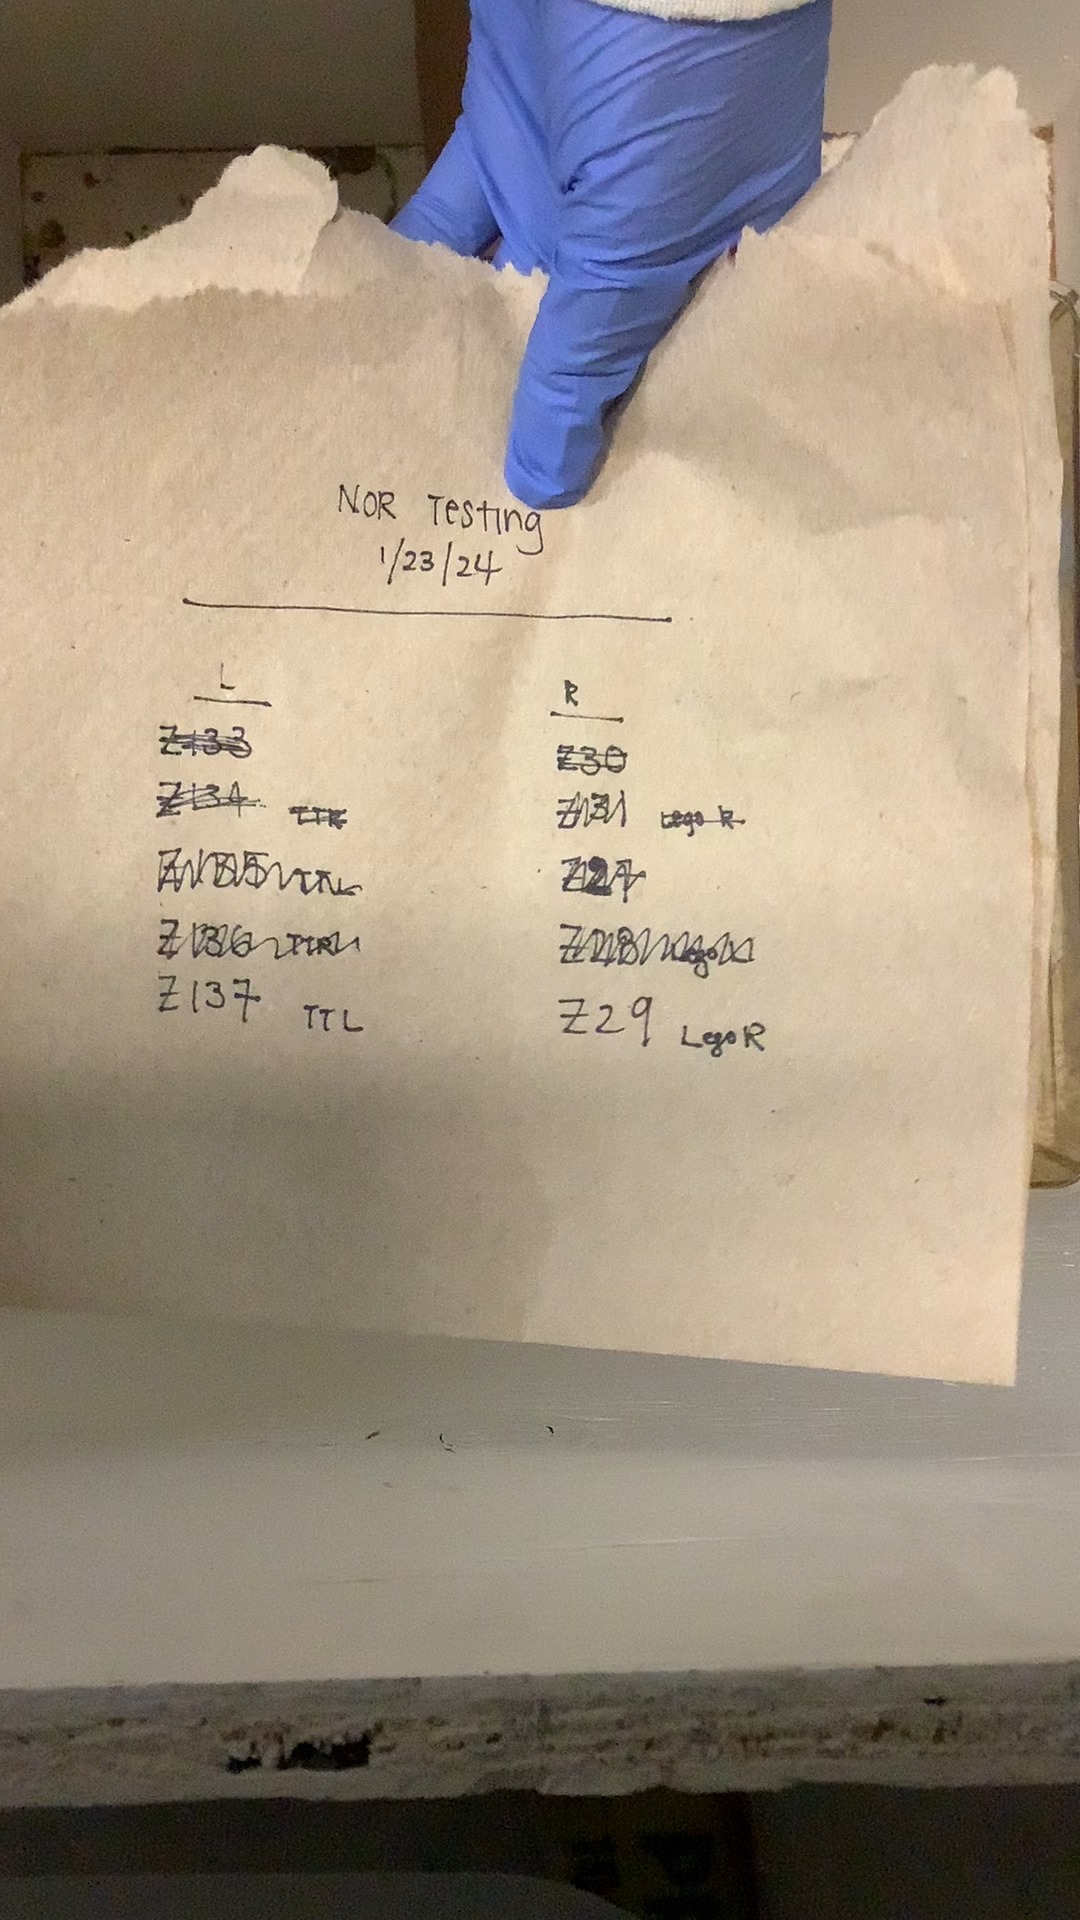 NOR Testing
1/23/24
L R
Z133 Z30
Z134 TTR Z131 Lego R
Z135 TTL Z27
Z136 TTR Z28 Lego
Z137 TTL Z29 Lego R